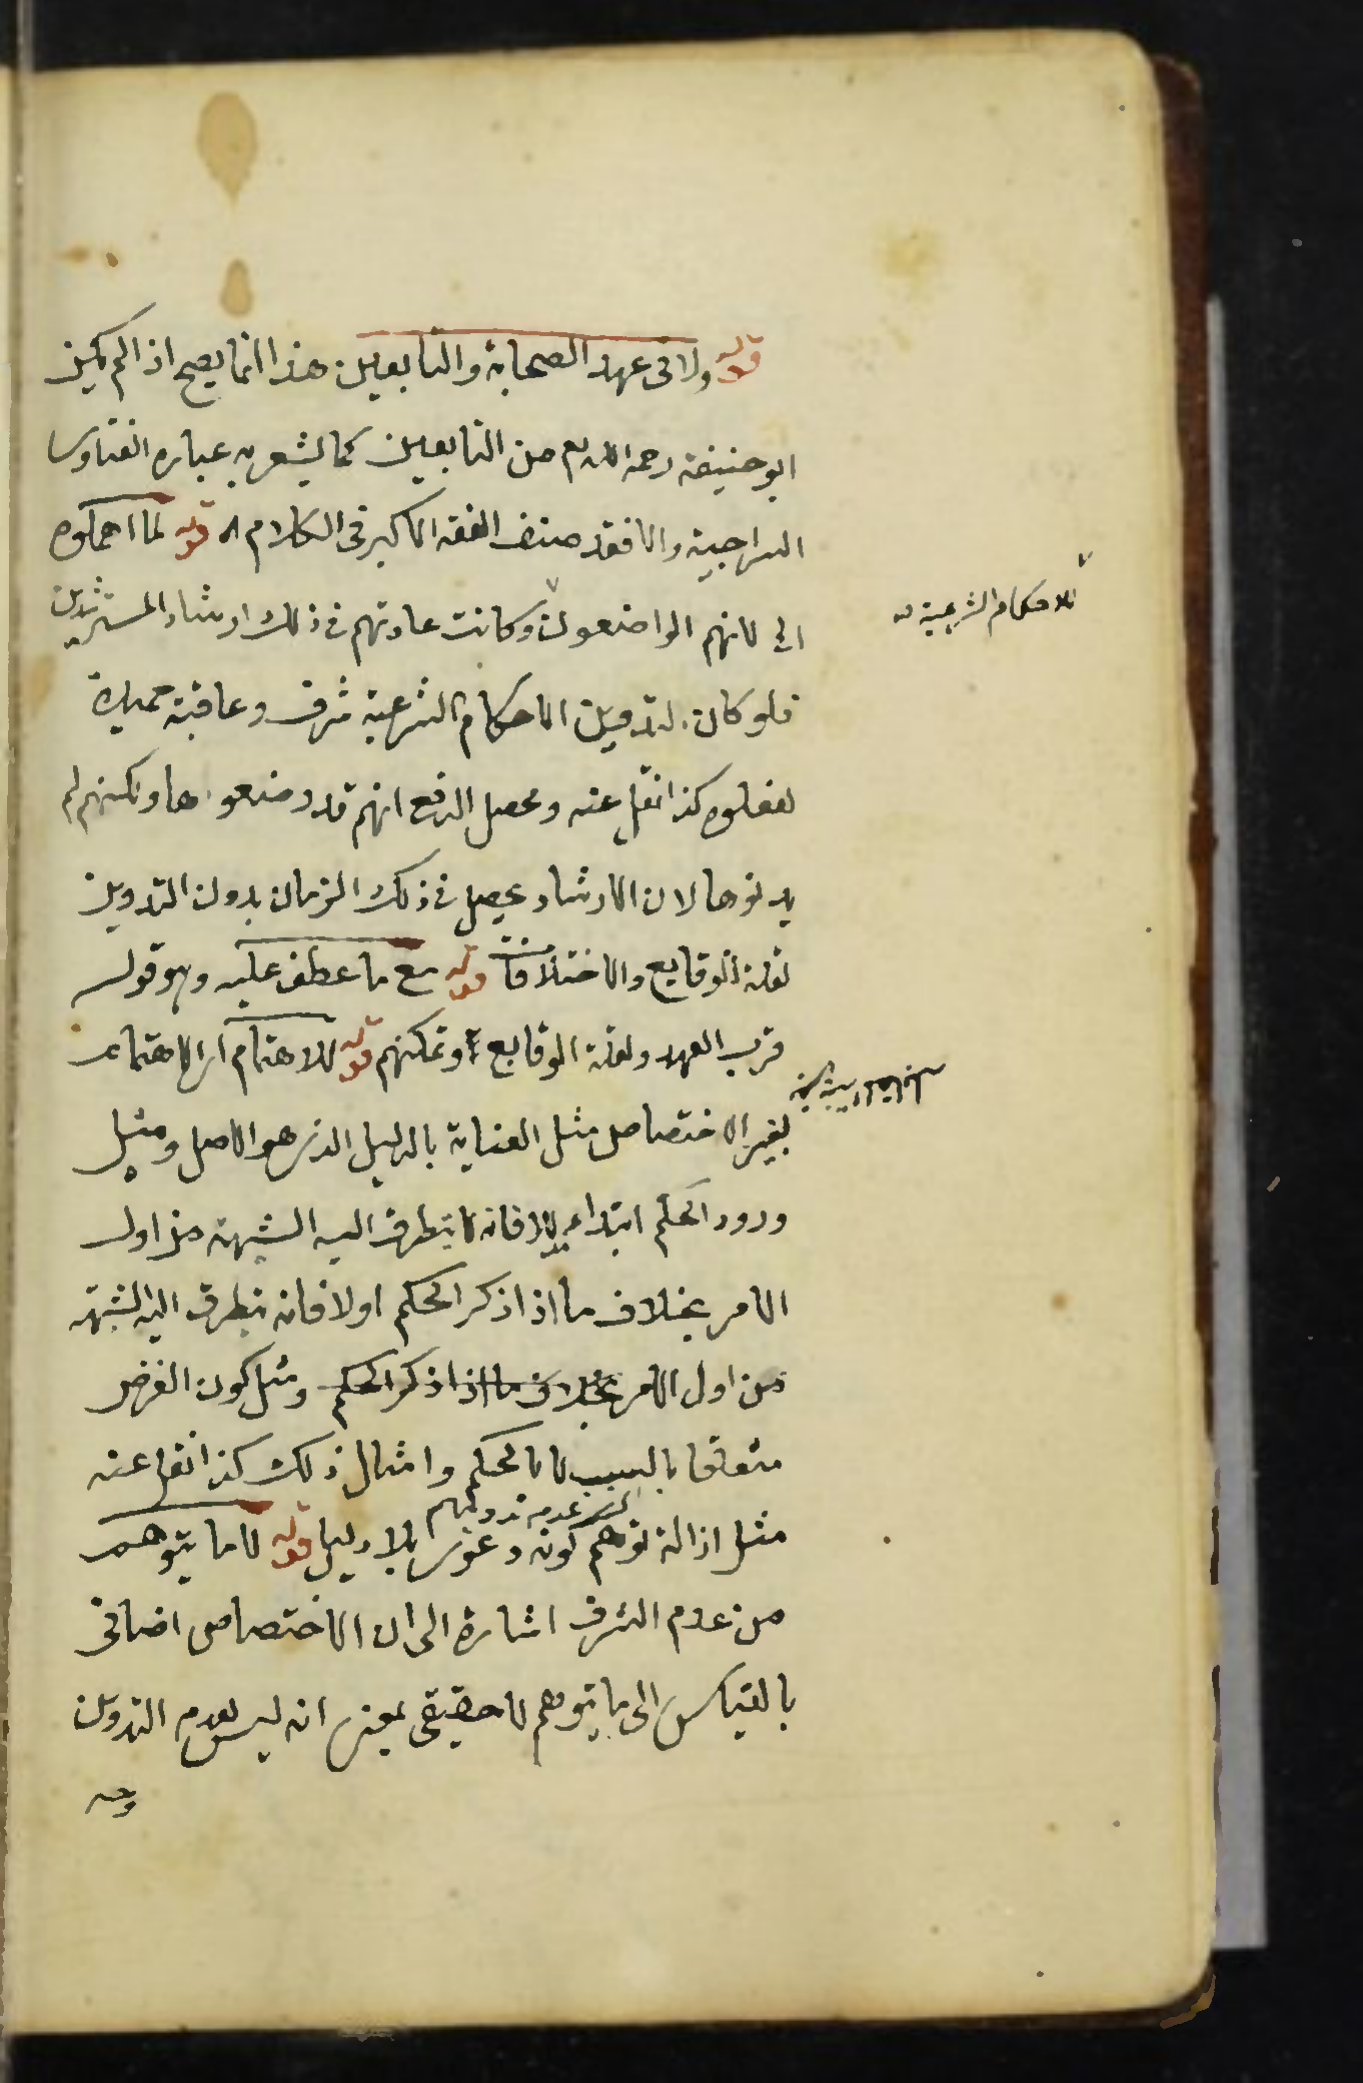 قوله ولا فى عهد الصحابة والتابعين هذا انما يصح اذا لم يكن
ابو حنيفة رحمه الله من التابعين كما يشعر به عبارة الفتاوى
السراجية والا فقد صنف الفقه الاكبر فى الكلام قوله لما اهملوه
اى لانهم الواضعون وكانت عادتهم فى ذلك ارشاد المسترشدين
للاحكام الشرعية
فلو كان لتدوين الاحكام الشرعية شرف وعاقبة حميدة
لفعلوه كذا نقل عنه ومحصل الدفع انهم قد وضعوها ولكنهم لم
يدونوها لان الارشاد يحصل فى ذلك الزمان بدون التدوين
لقلة الوقايع والاختلافات قوله مع ما عطف عليه وهو قوله
قرب العهد ولقلة الوقايع وتمكنهم قوله للاهتمام اى الاهتمام
بغير الاختصاص مثل العناية بالدليل الذى هو الاصل ومثل
ورود الحكم ابتداء فانه لا يتطرق اليه الشبهة من اول
الامر بخلاف ما اذا ذكر الحكم اولا فانه يتطرق اليه الشبهة
من اول الامر بخلاف ما اذا ذكر الحكم ومثل كون الغرض
متعلقا بالسبب لا بالحكم وامثال ذلك كذا نقل عنه
عدم تدوينهم
مثل ازالة توهم كونه دعوى بلا دليل قوله لا ما يتوهم
من عدم الشرف اشارة الى ان الاختصاص اضافى
بالقياس الى ما يتوهم لا حقيقى بمعنى انه ليس لعدم التدوين
وجه